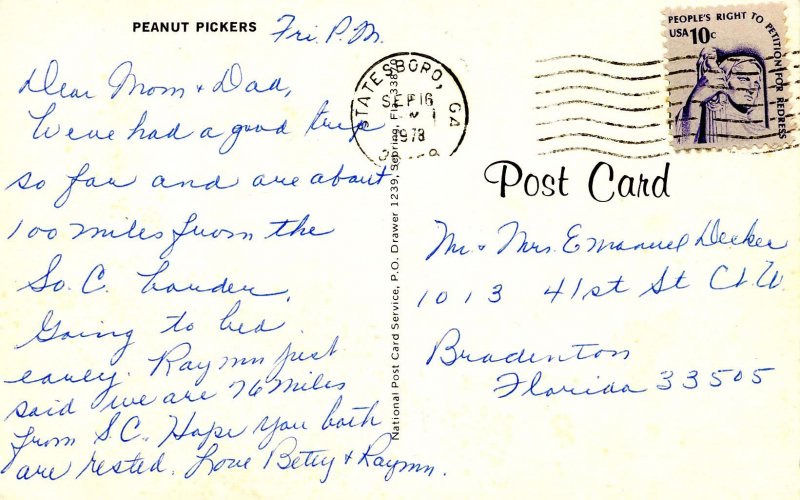 PEANUT PICKERS
Fri. P.M.
Dear Mom + Dad,
We've had a good trip
so far and are about
100 miles from the
So. C. border.
Going to bed
early. Raymn just
said we are 76 miles
from S.C. Hope you both
are rested. Love Betty + Raymn.
National Post Card Service, P.O. Drawer 1239, Sebring, Fla. 33870
STATESBORO, GA
SEP 16
1978
PEOPLE'S RIGHT TO PETITION FOR REDRESS
USA 10c
Post Card
Mr + Mrs. Emanuel Decker
1013 41st St Ct. W.
Bradenton
Florida 33505